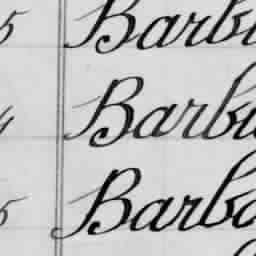 5 Barb
Barb
5 Barb